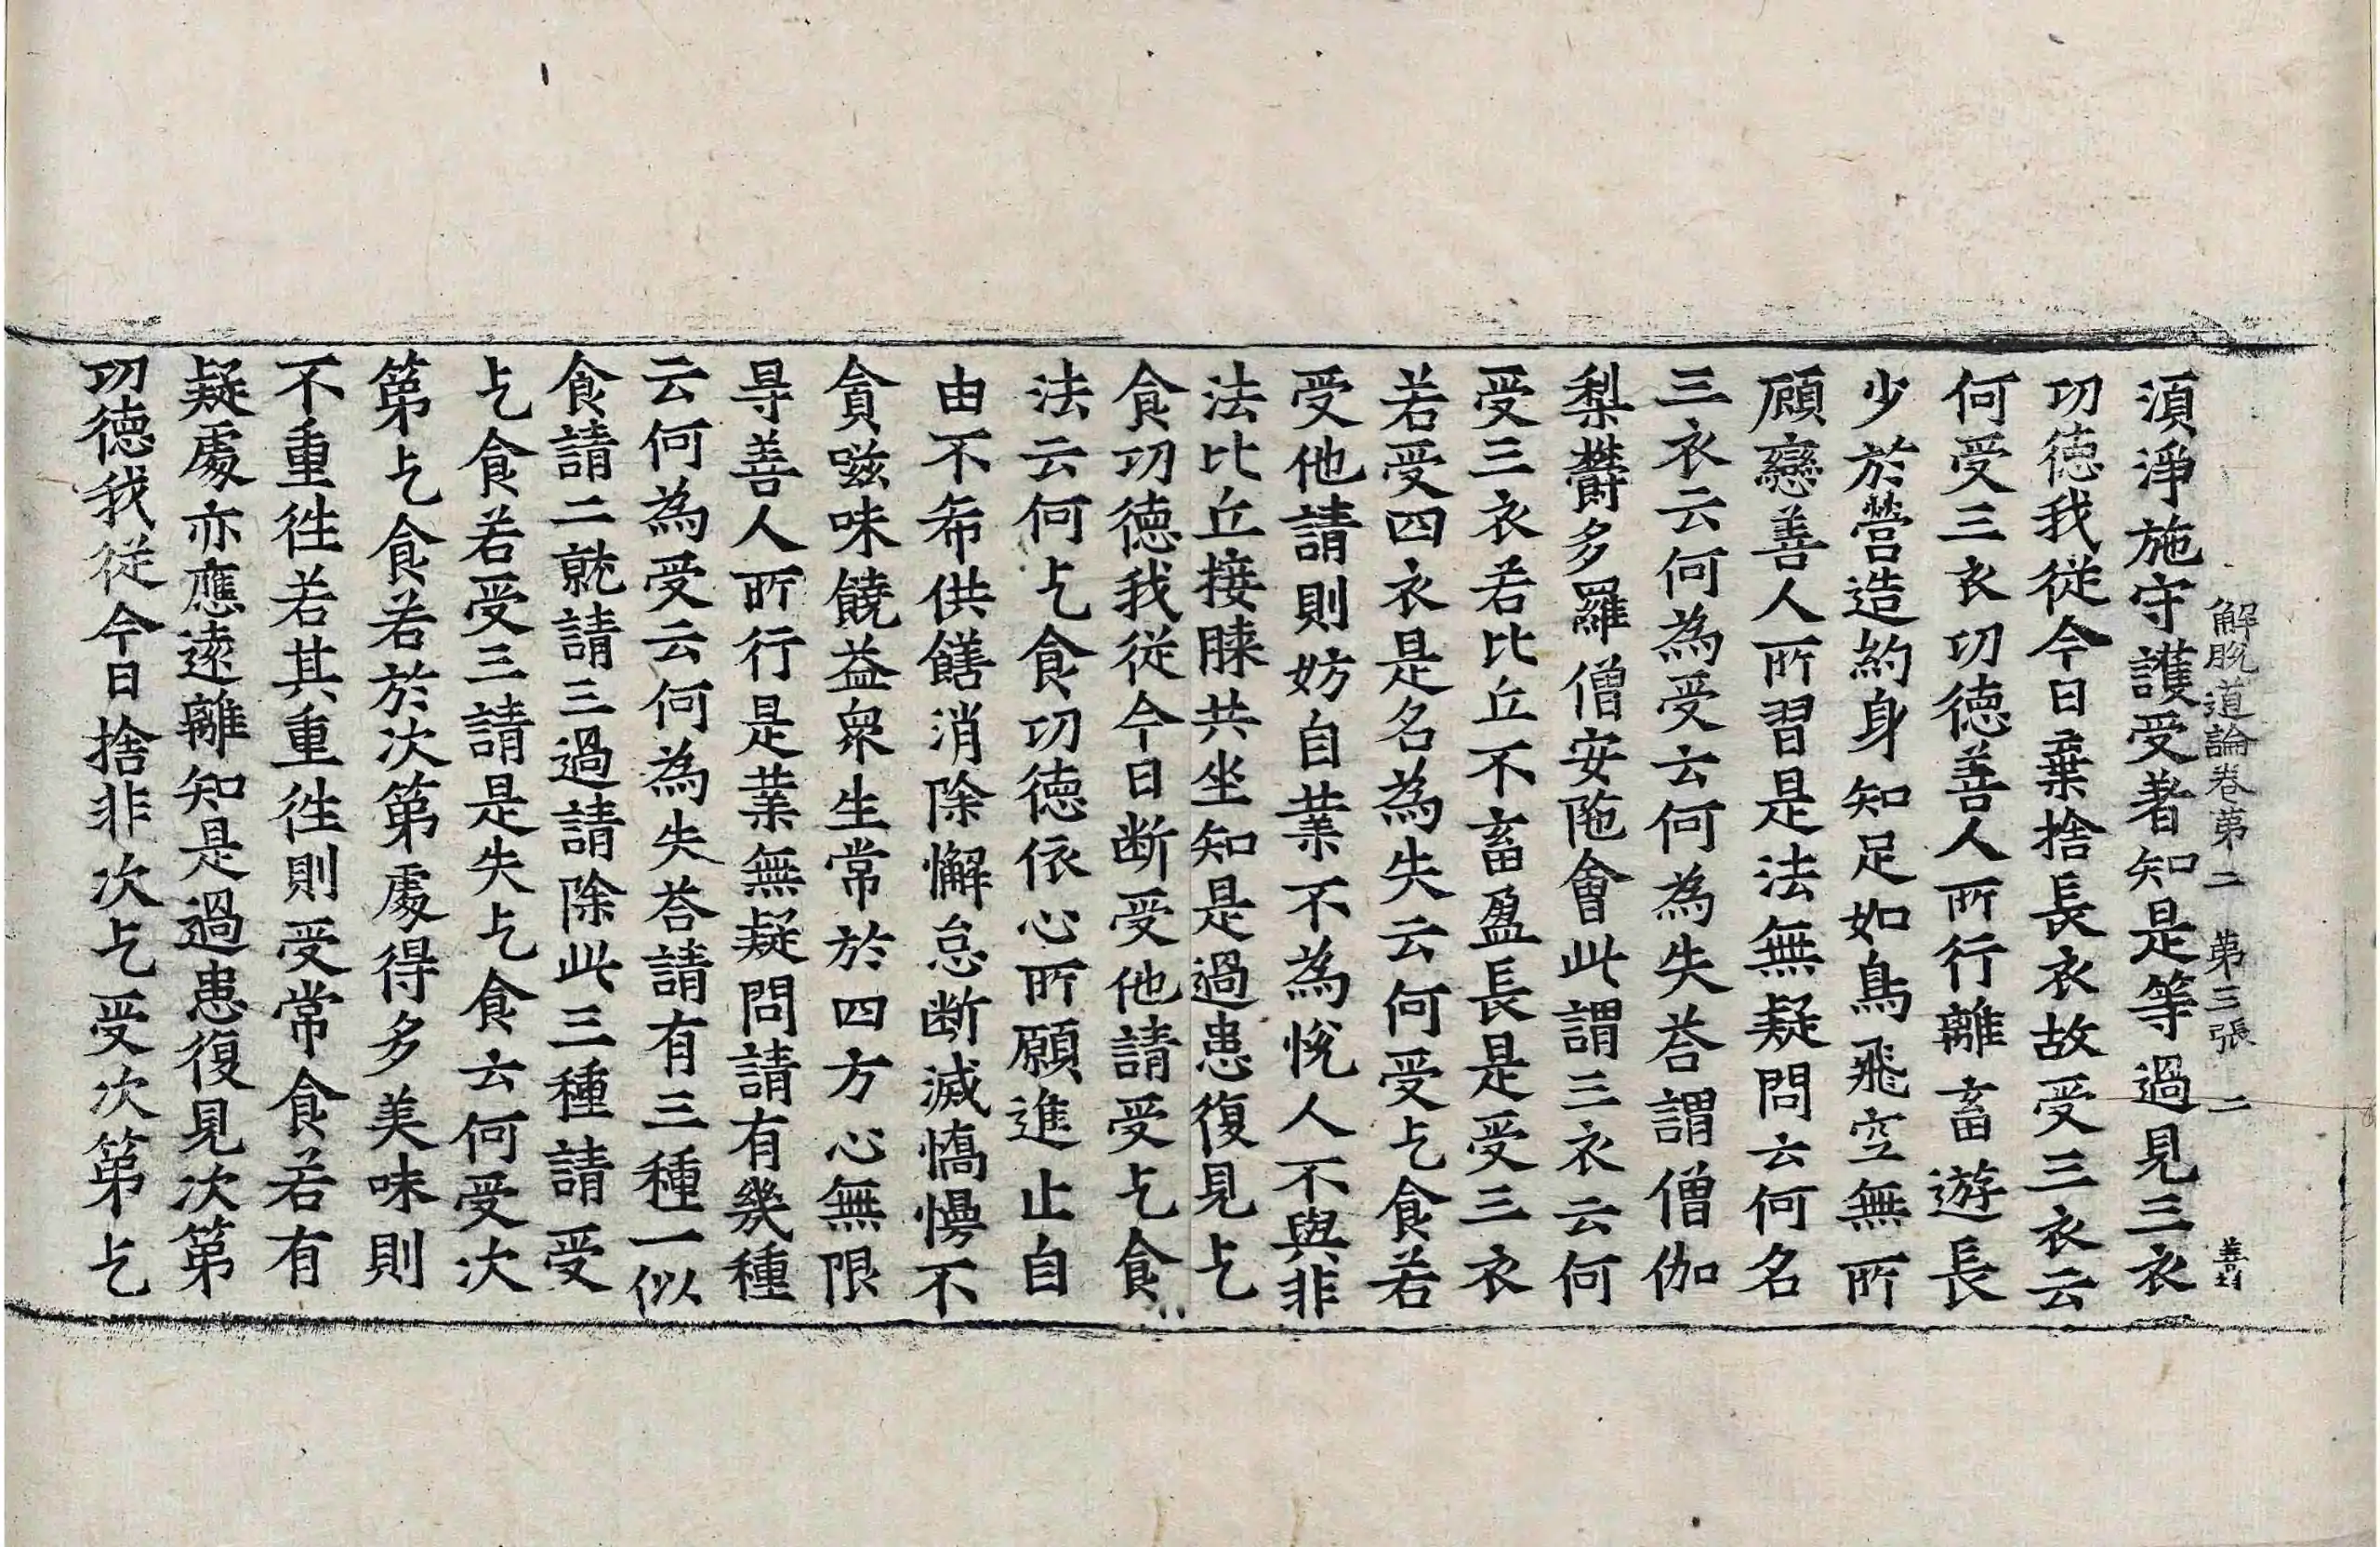 解脫道論卷第二　第三張　二　善
湏淨施守護受者知是等過見三衣
功徳我從今日棄捨長衣故受三衣云
何受三衣功徳善人所行離畜遊長
少於營造約身知足如鳥飛空無所
顧戀善人所習是法無疑問云何名
三衣云何為受云何為失荅謂僧伽
梨欝多羅僧安陁會此謂三衣云何
受三衣若比丘不畜盈長是受三衣
若受四衣是名為失云何受乞食若
受他請則妨自業不為悅人不與非
法比丘接膝共坐知是過患復見乞
食功徳我從今日断受他請受乞食
法云何乞食功徳依心所願進止自
由不希供饍消除懈怠断滅憍慢不
貪滋味饒益衆生常於四方心無限
㝵善人所行是業無疑問請有幾種
云何為受云何為失荅請有三種一似
食請二就請三過請除此三種請受
乞食若受三請是失乞食云何受次
第乞食若於次第處得多美味則
不重徃若其重徃則受常食若有
疑處亦應遠離知是過患復見次第
功徳我從今日捨非次乞受次第乞